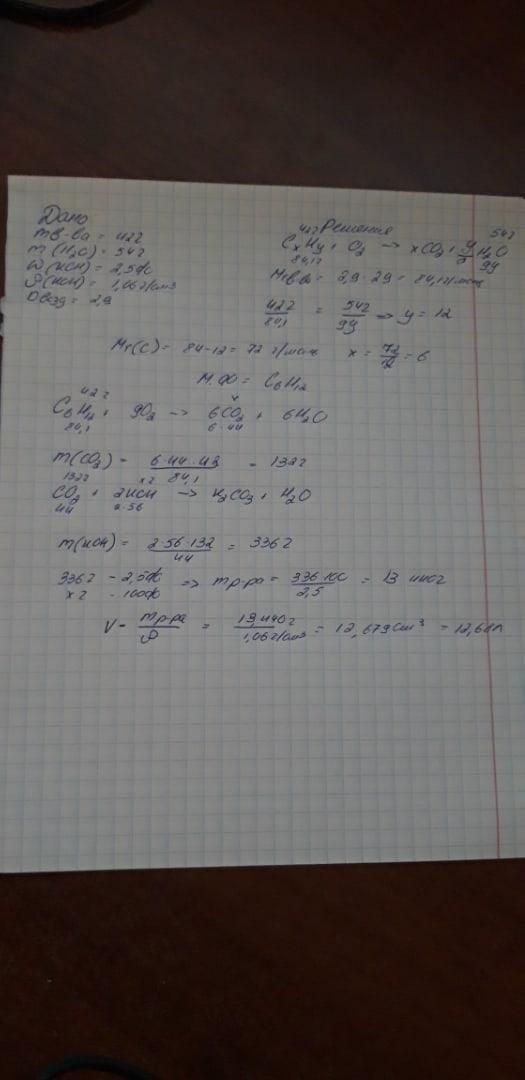 Дано
m в-ва = 42г
m (H₂O) = 54г
ω (KOH) = 2,5%
ρ (KOH) = 1,06 г/см3
D возд = 2,9
Решения
42г 54г
CxHy + O₂ → xCO₂ + y/2 H₂O
84,1г 9y
Mr в-ва = 2,9 · 29 = 84,1 г/моль
42г/84,1 = 54г/9y => y = 12
Mr(C) = 84-12 = 72 г/моль x = 72/12 = 6
М.ФО = C₆H₁₂
42г x
C₆H₁₂ + 9O₂ → 6CO₂ + 6H₂O
84,1 6·44
m(CO₂) = 6·44·42/84,1 = 132г
132г xг
CO₂ + 2KOH → K₂CO₃ + H₂O
44 2·56
m(KOH) = 2·56·132/44 = 336г
336г - 2,5% => m р-ра = 336·100/2,5 = 13 440г
xг - 100%
V = m р-ра/ρ = 13,440г/1,06г/см3 = 12,679см³ = 12,68л